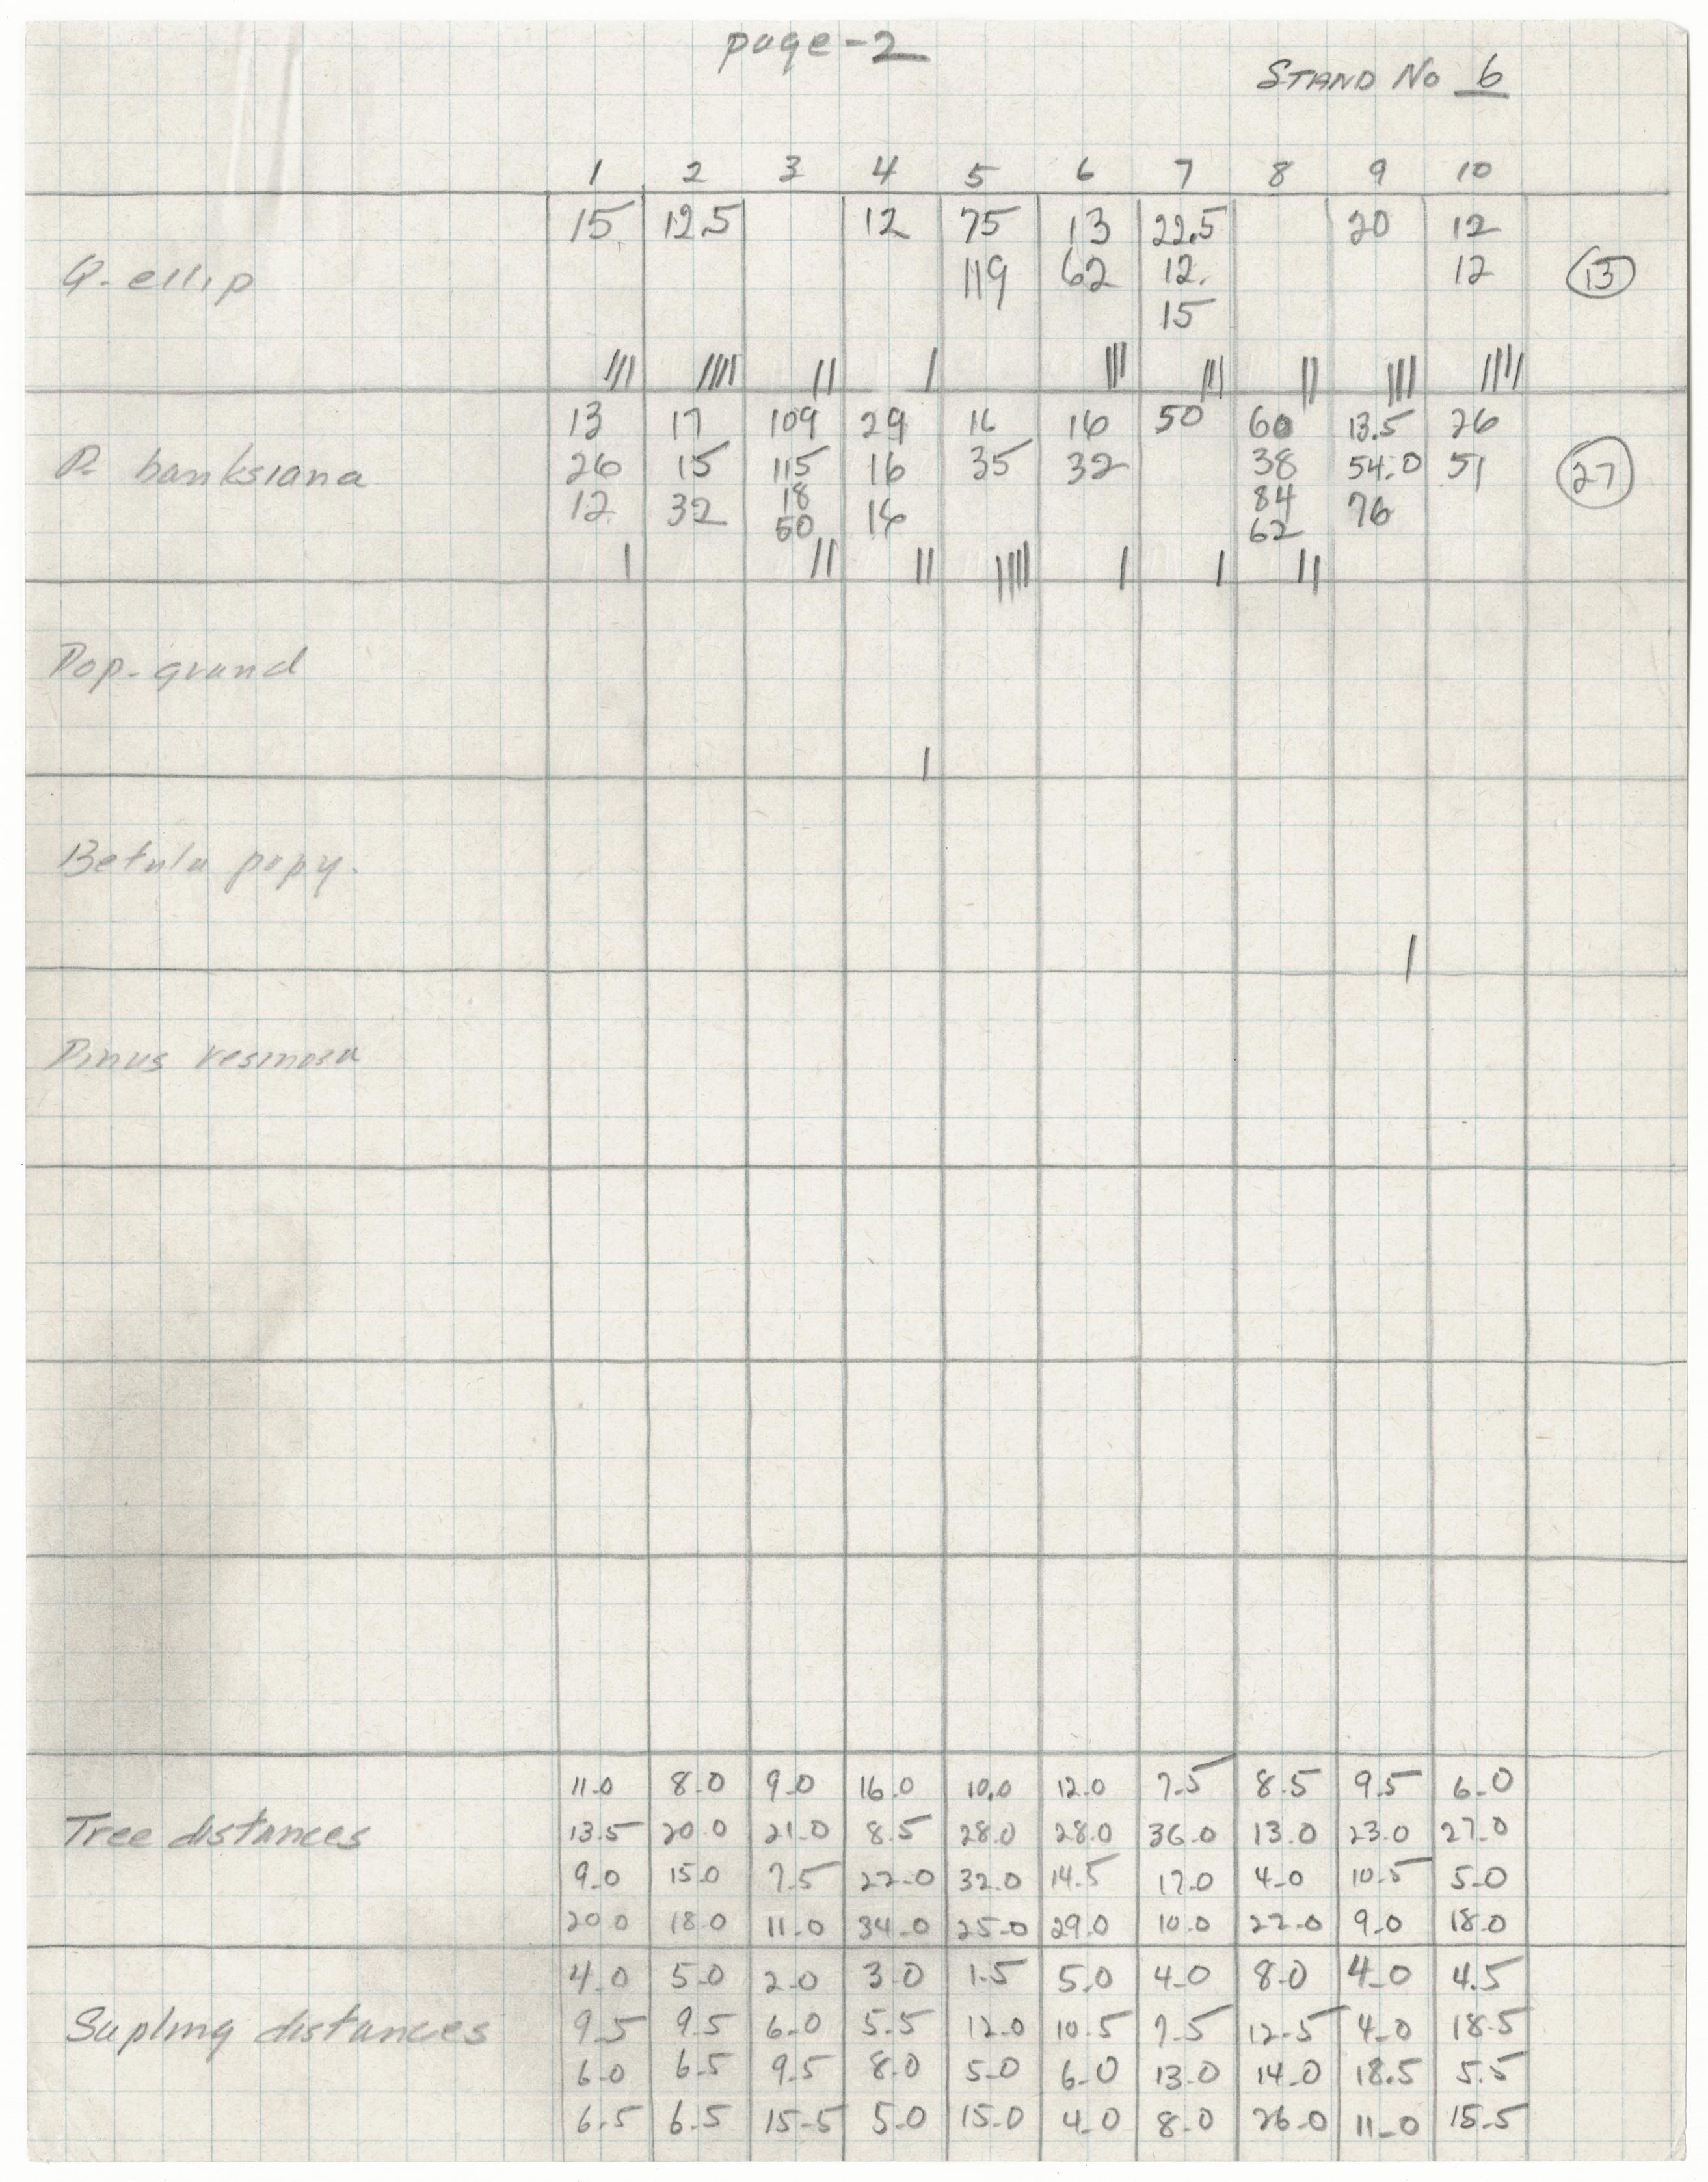 page-2
STAND No 6
1 2 3 4 5 6 7 8 9 10
15 12.5 12 75 13 22.5 20 12
Q. ellip 119 62 12. 12 13
15
||| |||| || | ||| ||| || ||| ||||
13 17 109 29 16 16 50 60 13.5 26
P. banksiana 26 15 115 16 35 32 38 54.0 51 27
12 32 18 16 84 76
50 62
| || || |||| | | ||
Pop. grand
|
Betula papy.
|
Pinus resinosa
11.0 8.0 9.0 16.0 10.0 12.0 7.5 8.5 9.5 6.0
Tree distances 13.5 20.0 21.0 8.5 28.0 28.0 36.0 13.0 23.0 27.0
9.0 15.0 7.5 22.0 32.0 14.5 17.0 4.0 10.5 5.0
20.0 18.0 11.0 34.0 25.0 29.0 10.0 22.0 9.0 18.0
4.0 5.0 2.0 3.0 1.5 5.0 4.0 8.0 4.0 4.5
Sapling distances 9.5 9.5 6.0 5.5 12.0 10.5 7.5 12.5 4.0 18.5
6.0 6.5 9.5 8.0 5.0 6.0 13.0 14.0 18.5 5.5
6.5 6.5 15.5 5.0 15.0 4.0 8.0 26.0 11.0 15.5